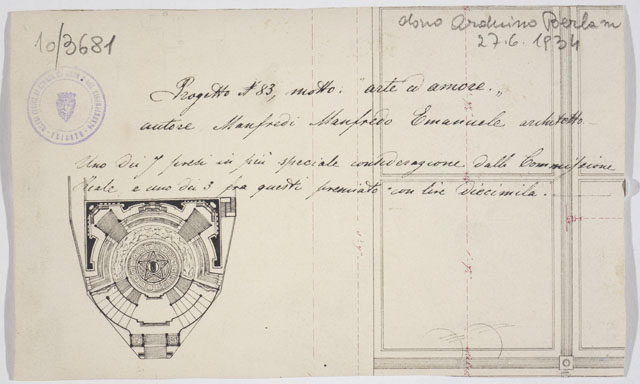 10/3681
dono Arduino Berlam
27.6.1934
Progetto N° 83, motto: "arte ed amore"
autore Manfredi Manfredo Emanuele architetto
Uno dei 7 presi in più speciale considerazione dalla Commissione
Reale e uno dei 3 fra questi premiato con lire diecimila.